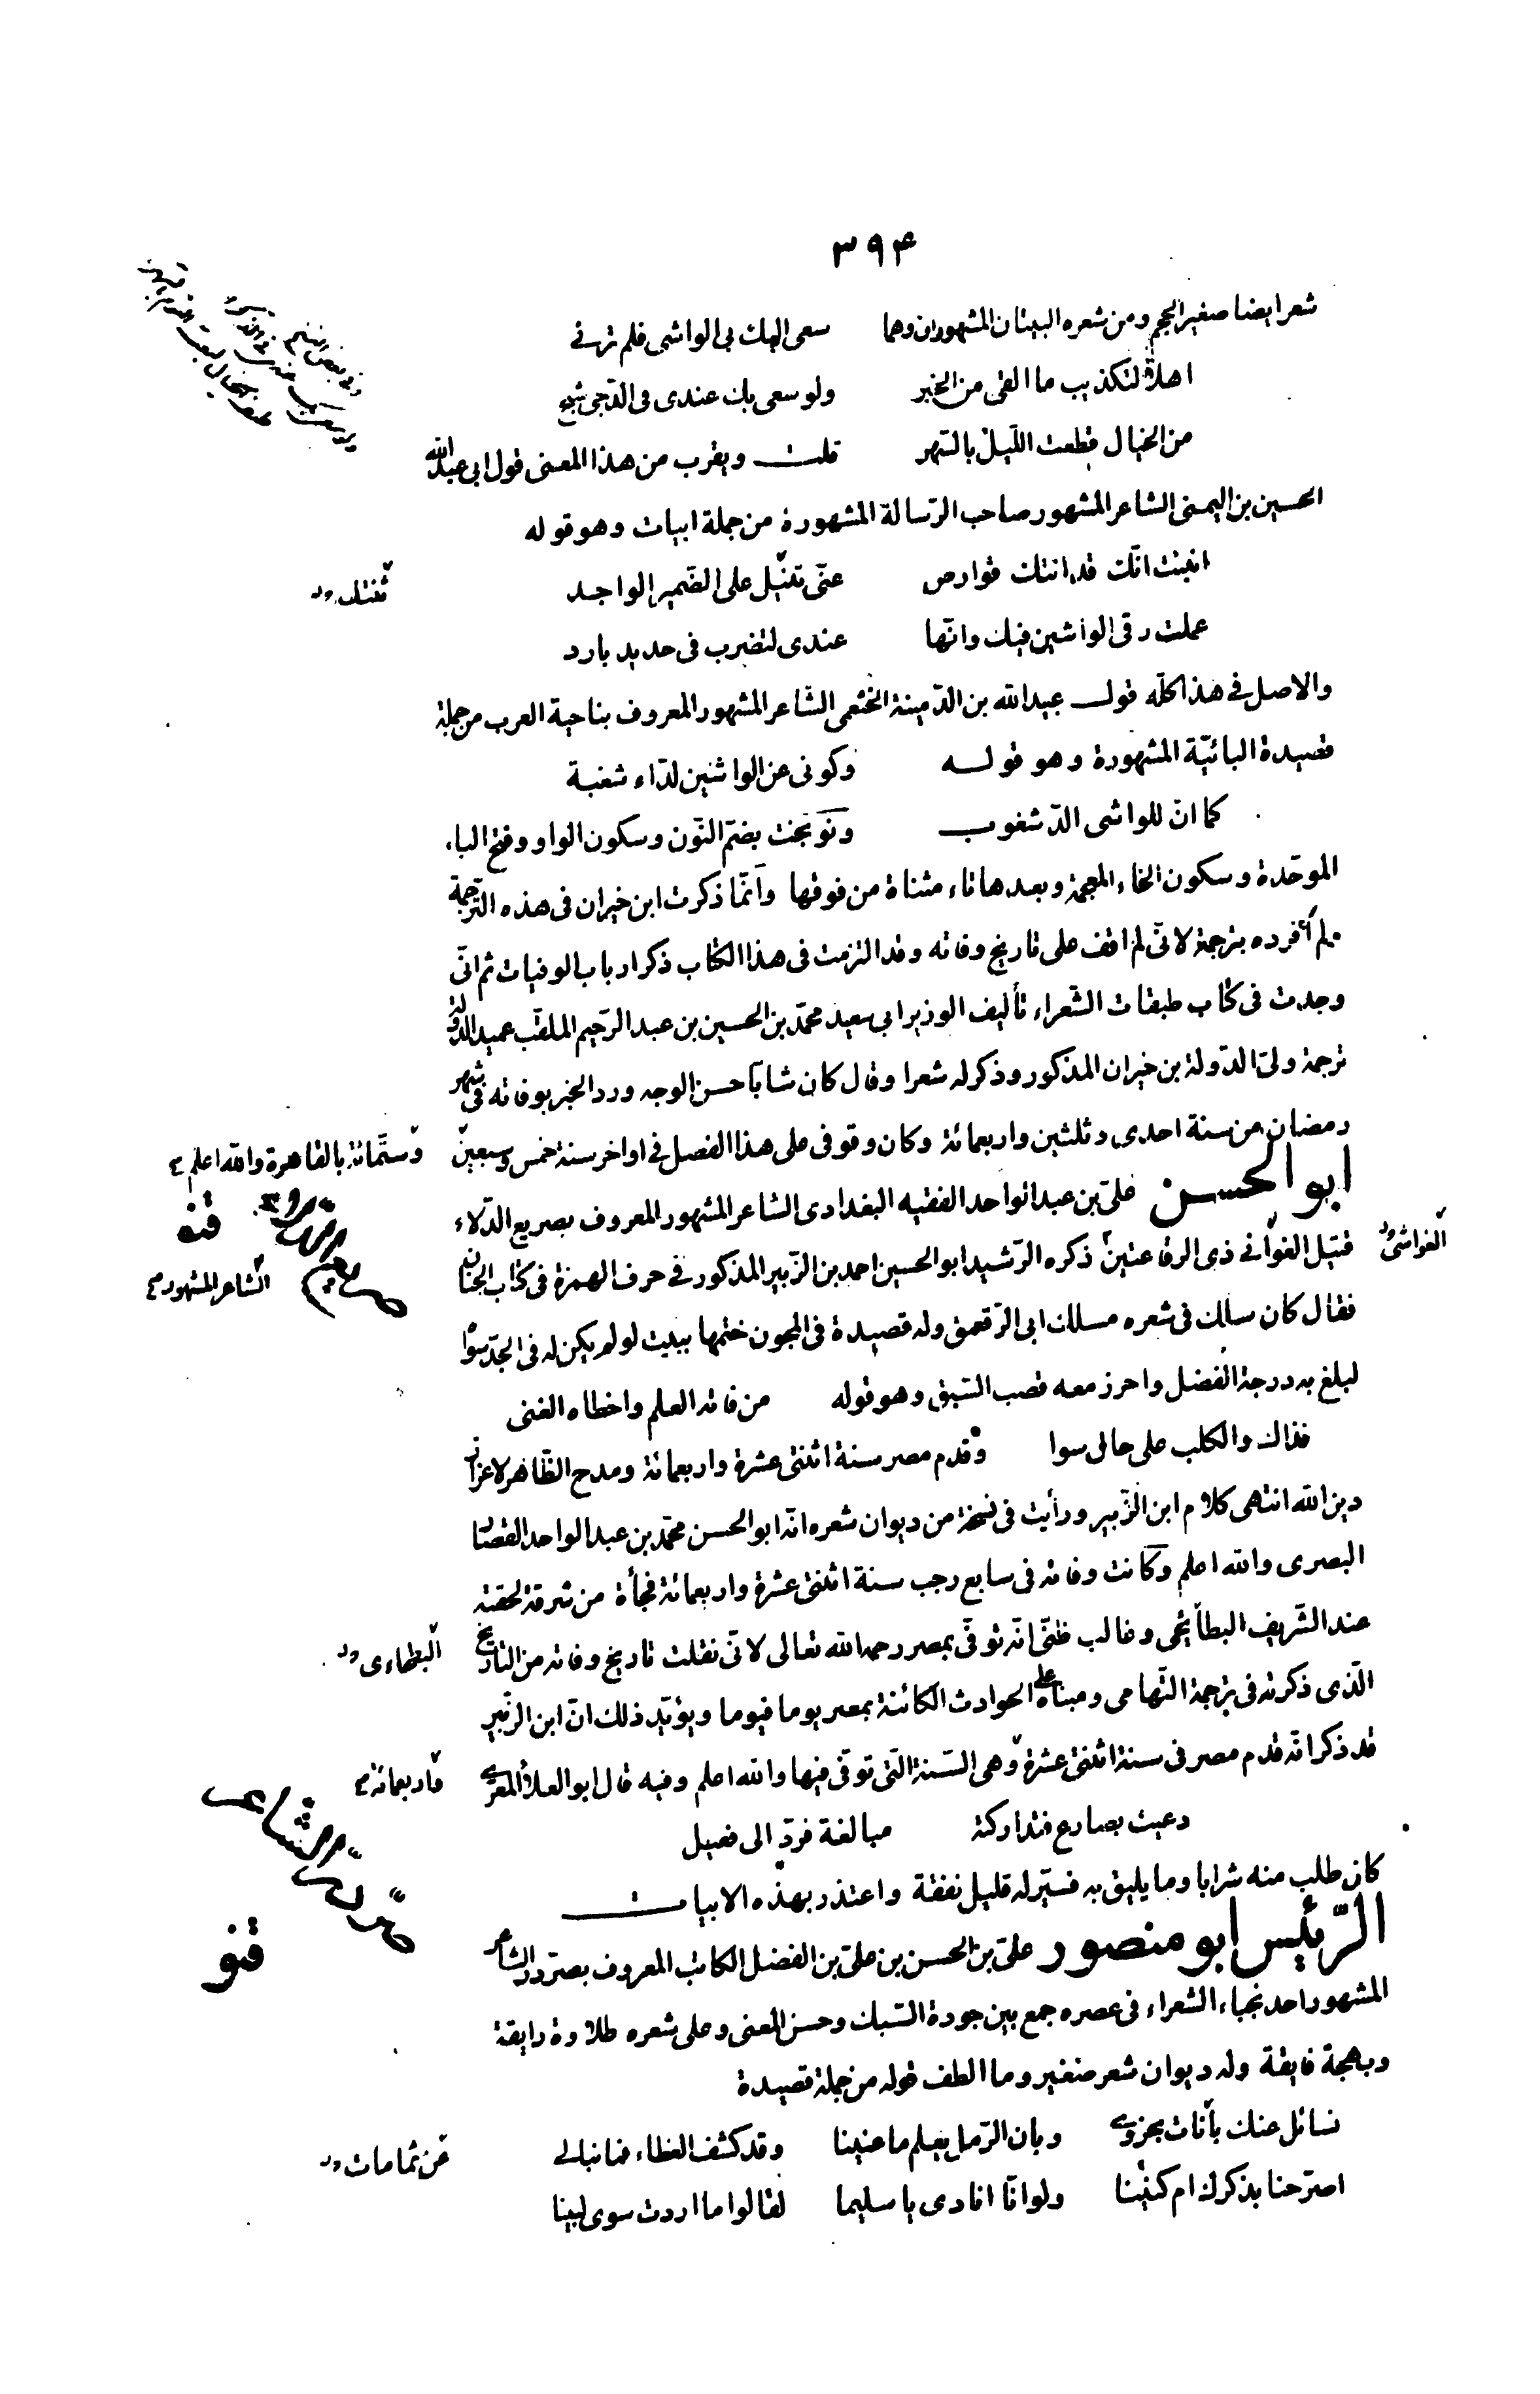 ٣٩۴
شعر ايضا صغير الحجم ومن شعره البيتان المشهوران وهما سعى اليك بى الواشى فلم ترنى
اهلاً لتكذيب ما القى من الخبر ولو سعى بك عندى فى الدّجى شبح
من الخيال قطعت اللّيل بالسّهر قلت ويقرب من هذا المعنى قول ابى عبد الله
الحسين بن اليمنى الشاعر المشهور صاحب الرّسالة المشهورة من جملة ابيات وهو قوله
انبئت انّك قد اتتك قوارص عنّى تثنيك على الضّمير الواجد
عملت رقى الواشين فيك وانّها عندى لتضرب فى حديد بارد
والاصل فى هذا كلّه قول عبد الله بن الدّمينة الخثعمى الشّاعر المشهور المعروف بناحية العرب من جملة
قصيدة البائيّة المشهورة وهو قوله وكونى عن الواشين لدّاء شغبة
كما انّ للواشى الدّ شغوب ونوبخت بضمّ النّون وسكون الواو وفتح الباء
الموحّدة وسكون الخاء المعجمة وبعدها تاء مثناة من فوقها وانّما ذكرت ابن خيران فى هذه التّرجمة
ولم أفرده بترجمة لانّى لم اقف على تاريخ وفاته وقد التزمت فى هذا الكتاب ذكر ارباب الوفيات ثم انّى
وجدت فى كتاب طبقات الشّعراء تأليف الوزير ابى سعيد محمّد بن الحسين بن عبد الرّحيم الملقّب عميد الدّولة
ترجمة ولىّ الدّولة بن خيران المذكور وذكر له شعرا وقال كان شابّا حسن الوجه ورد الخبر بوفاته فى شهر
رمضان من سنة احدى وثلثين واربعمائة وكان وقوفى على هذا الفصل فى اواخر سنة خمس وسبعين وستّمائة بالقاهرة والله اعلم
ابو الحسن علىّ بن عبد الواحد الفقيه البغدادى الشاعر المشهور المعروف بصريع الدّلاء
قتيل الغوانى ذى الرقاعتين ذكره الرّشيد ابو الحسين احمد بن الزّبير المذكور فى حرف الهمزة فى كتاب الجنان
الغواشى
الشاعر المشهور
فقال كان سلك فى شعره مسلك ابى الرّقعمق وله قصيدة فى المجون ختمها ببيت لو لم يكن له فى الجدّ سواه
لبلغ به درجة الفضل واحرز معه قصب السّبق وهو قوله من فاته العلم واخطاه الغنى
فذاك والكلب على حالى سوا وقدم مصر سنة اثنتى عشرة واربعمائة ومدح الظّاهر لاعزاز
دين الله انتهى كلام ابن الزّبير ورأيت فى نسخة من ديوان شعره انّه ابو الحسن محمّد بن عبد الواحد القصّار
البصرى والله اعلم وكانت وفاته فى سابع رجب سنة اثنتى عشرة واربعمائة فجأة من شرقة لحقته
عند الشّريف البطأيحى وغالب ظنّى انّه توفّى بمصر رحمه الله تعالى لانّى نقلت تاريخ وفاته من التاريخ
البطحاوى
الّذى ذكرته فى ترجمة التّهامى ومبناه على الحوادث الكائنة بمصر يوما فيوما ويؤيّد ذلك انّ ابن الزّبير
قد ذكر انّه قدم مصر فى سنة اثنتى عشرة وهى السّنة الّتى توفّى فيها والله اعلم وفيه قال ابو العلاء المعرّى
واربعمائة
دعيت بصارع فتداركته مبالغة فردّ الى فعيل
كان طلب منه شرابا وما يليق به فسيّر له قليل نفقة واعتذر بهذه الابيات
صرّ درّ الشاعر
الرّئيس ابو منصور علىّ بن الحسن بن علىّ بن الفضل الكاتب المعروف بصرّ درّ الشاعر
المشهور احد نجباء الشعراء فى عصره جمع بين جودة السّبك وحسن المعنى وعلى شعره طلاوة رايقة
وبهجة فايقة وله ديوان شعر صغير وما الطف قوله من جملة قصيدة
نسائل عنك بانات بحزوى وبان الرّمل يعلم ما عنينا وقد كشف الغطاء فما نبالى
عن ثمامات
اصرّحنا بذكرك ام كنينا ولو انّا انادى يا سليما لقالوا ما اردت سوى لبينا